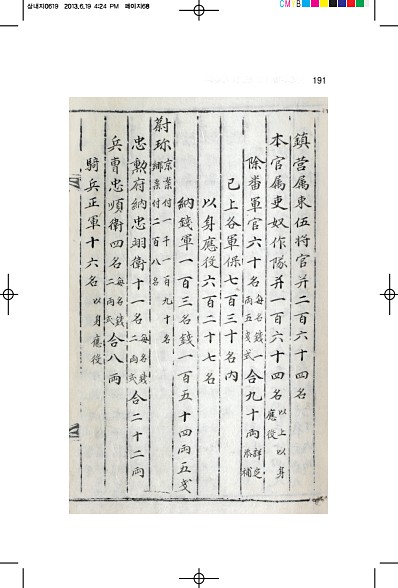 삼내지0619 2013.6.19 4:24 PM 페이지68
CMYB
191
鎮营属束伍将官并二百六十四名
本官属吏奴作隊并一百六十四名 以上以身應役
除番軍官六十名 每名錢一両五戔式 合九十両 詳定添補
已上各軍保七百三十名内
以身應役六百二十七名
納錢軍一百三名錢一百五十四両五戔
蔚珎 京案付一千一百九十名 鄉案付二百八名
忠勲府納忠翊衛十一名 每名錢二両式 合二十二両
兵曹忠順衛四名 每名錢二両式 合八両
騎兵正軍十六名 以身應役